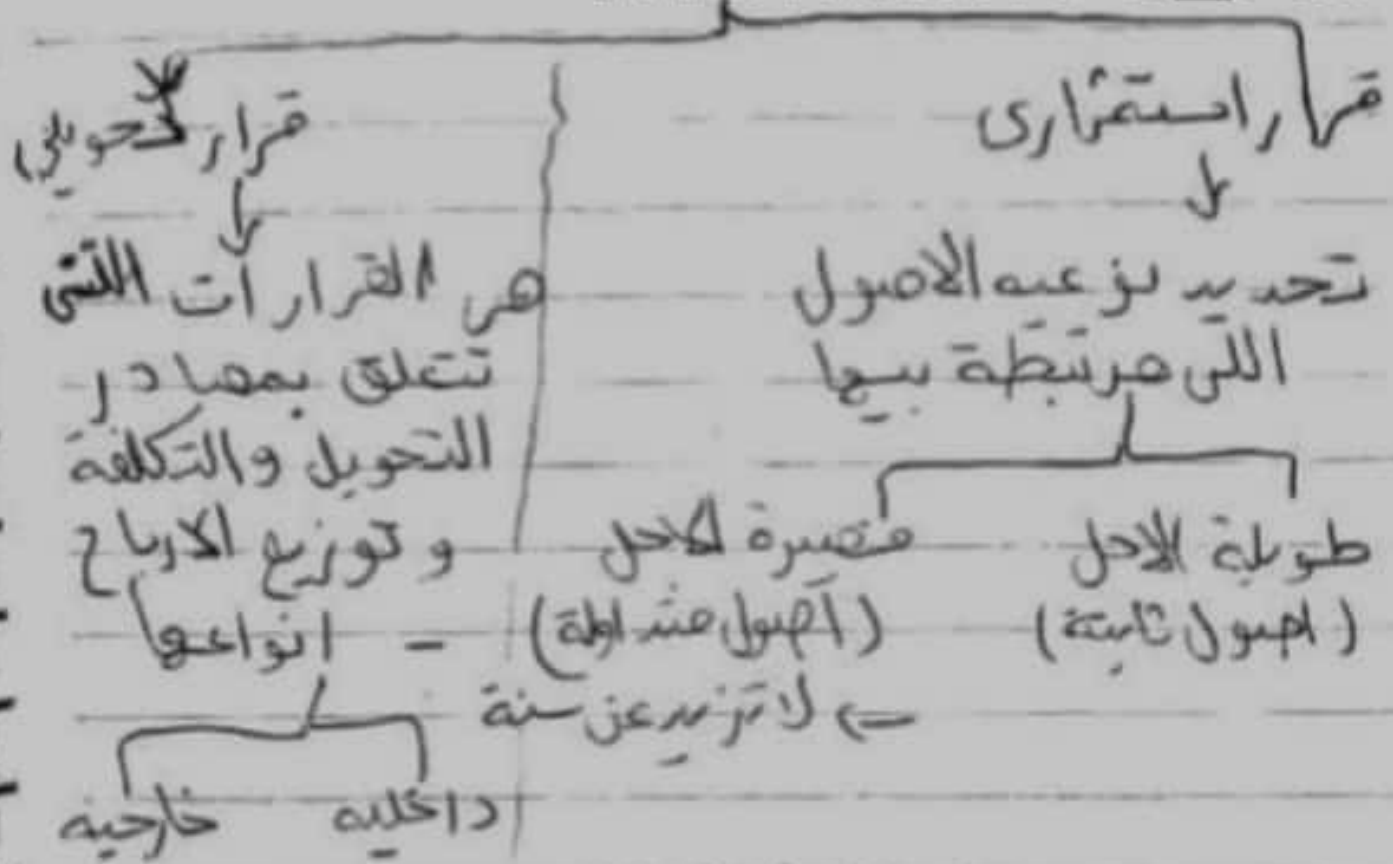 قرار استثمارى
تحديد نوعيه الاصول
اللى مرتبطة بيها
طويلة الاجل
(اصول ثابتة)
قصيرة الاجل
(أصول متداولة)
لا تزيد عن سنة
قرار تمويلي
هي القرارات التى
تتعلق بمصادر
التمويل والتكلفة
وتوزيع الارباح
- انواعها
داخليه
خارجيه